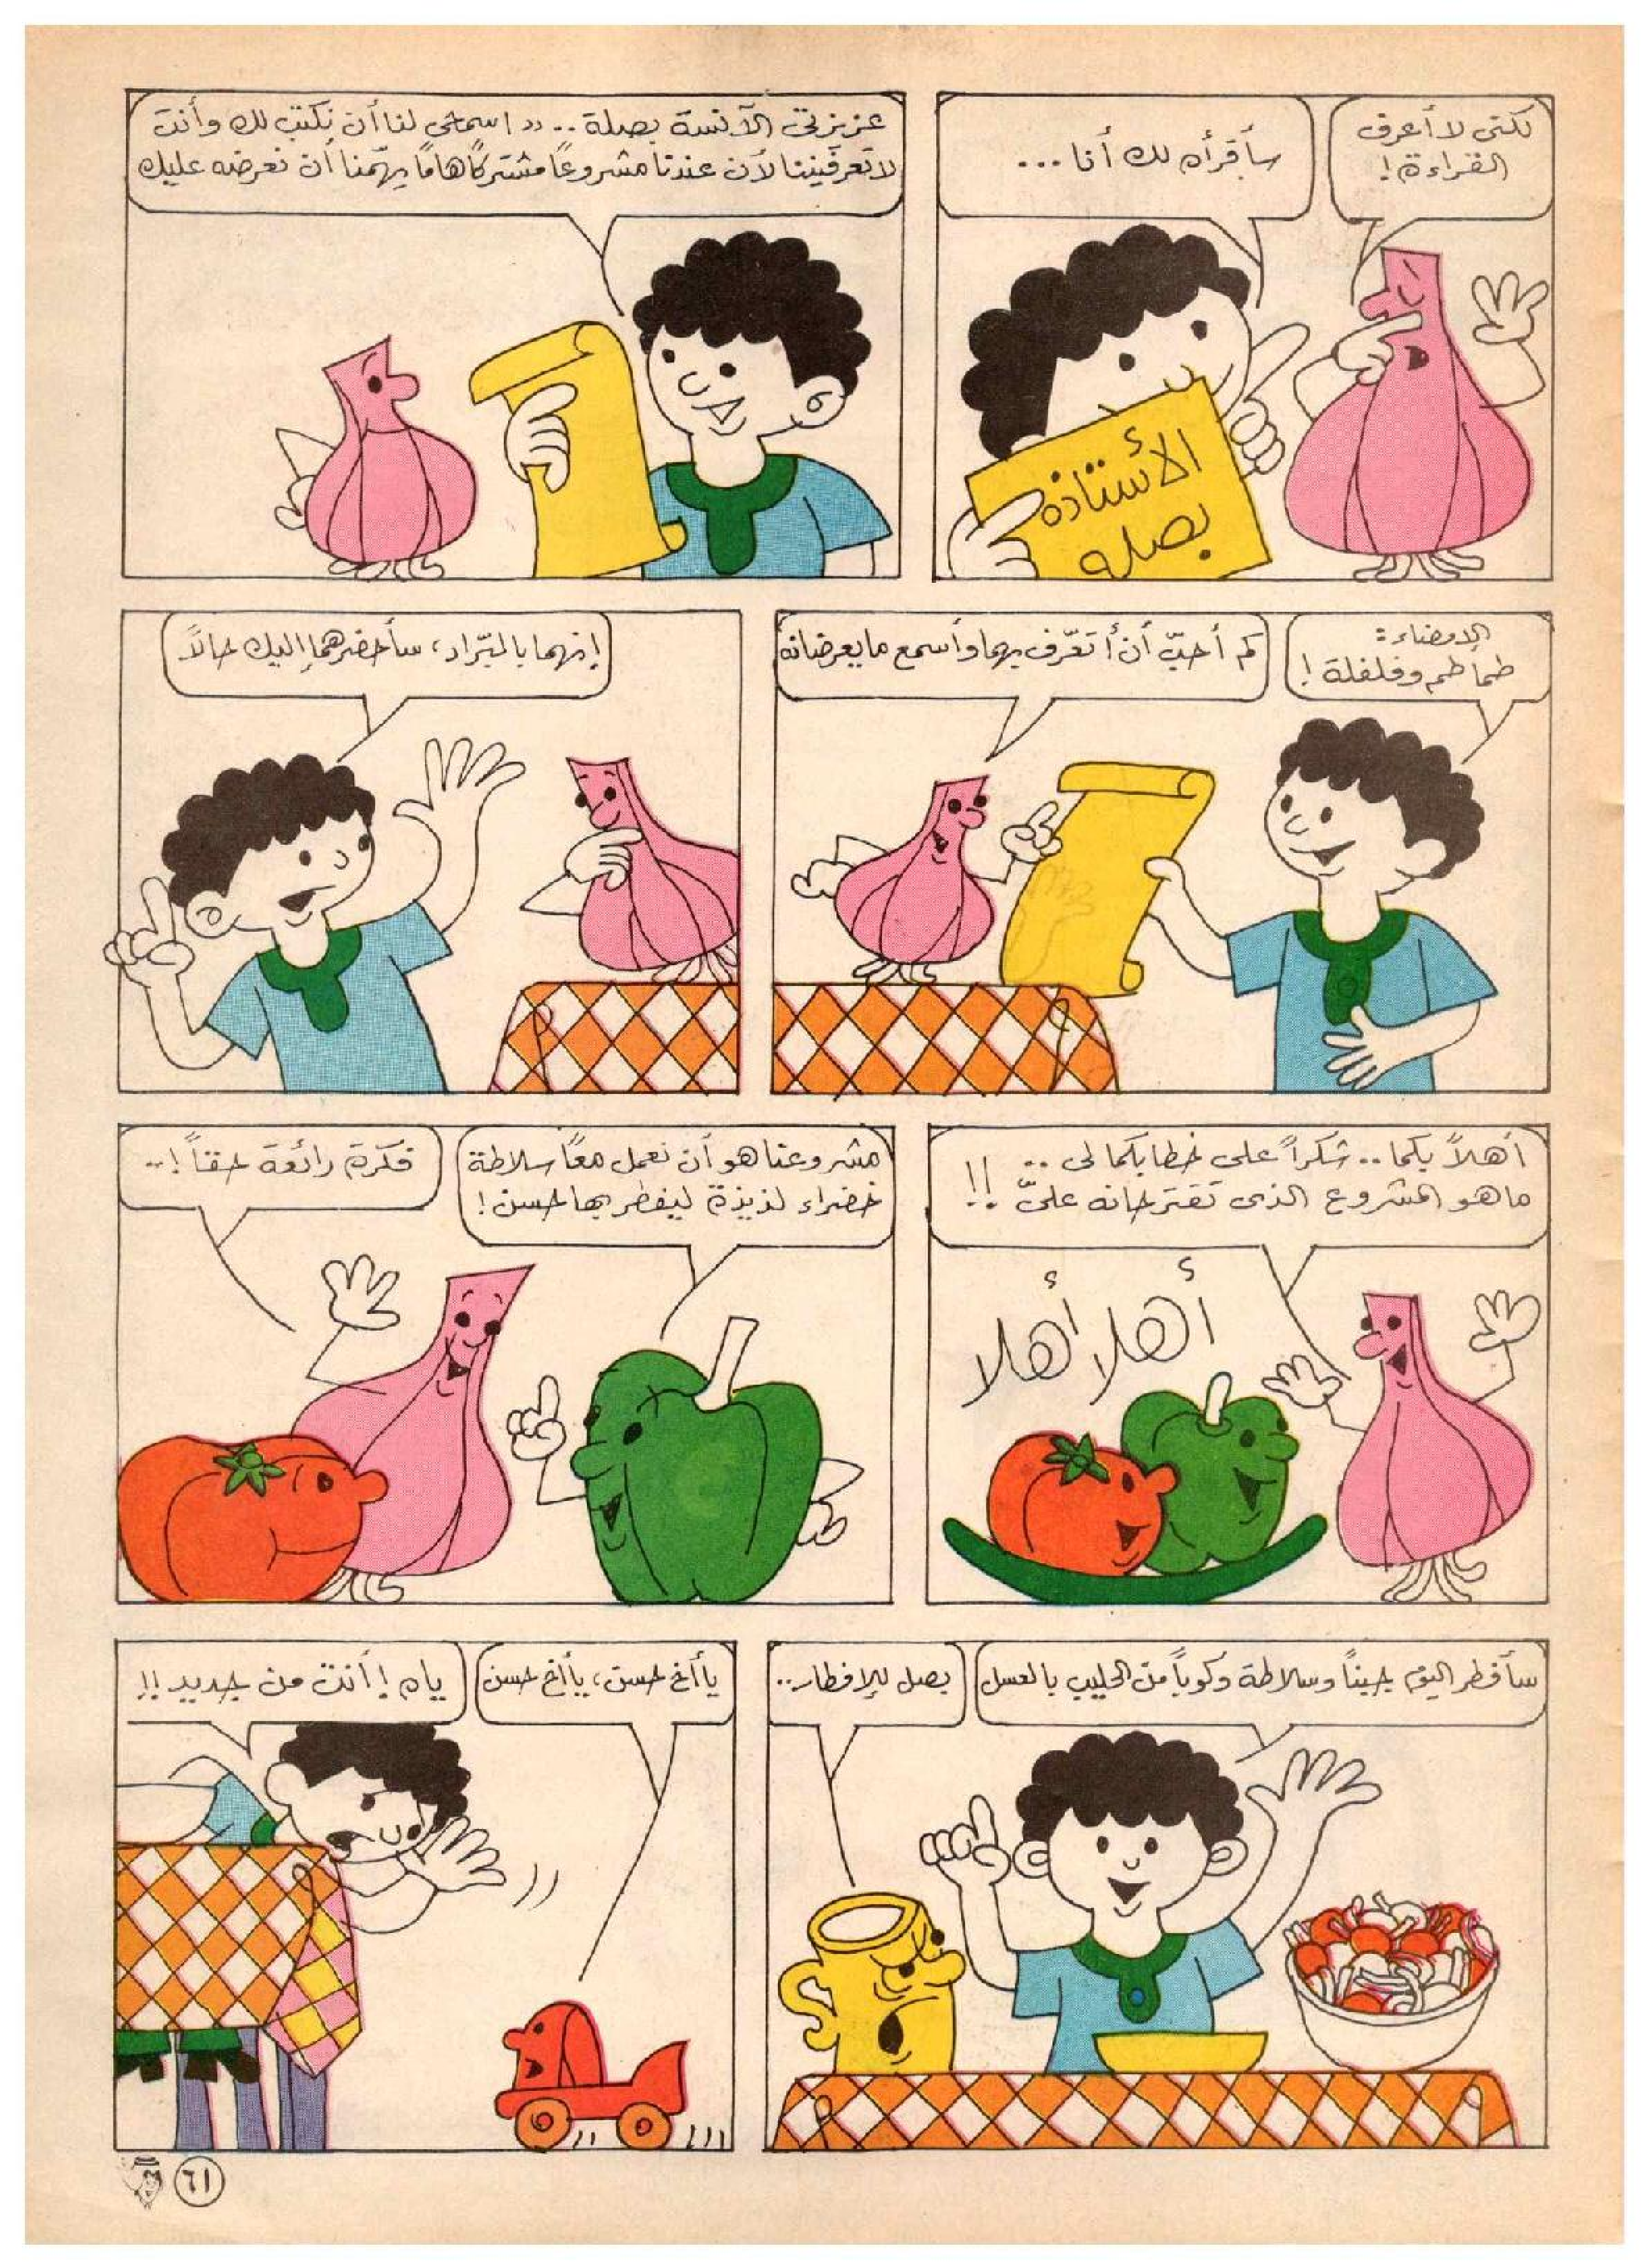 لكنى لا أعرف
القراءة !
سأقرأه لك أنا ...
الأستاذه
بصله
عزيزتى الآنسة بصلة .. " اسمحى لنا أن نكتب لك وأنت
لا تعرفيننا لأن عندنا مشروعًا مشتركًا هامًا يهمّنا أن نعرضه عليك
الإمضاء :
طماطم وفلفلة !
كم أحبّ أن أتعّرف بهما وأسمع ما يعرضانه
إنهما بالبرّاد، سأحضرهما إليك حالاً
أهلاً بكما .. شكراً على خطابكما لى ..
ما هو المشروع الذى تقترحانه علىّ !!
أهلا أهلا
مشروعنا هو أن نعمل معًا سلاطة
خضراء لذيذة ليفطر بها حسن !
فكرة رائعة حقاً !..
سأفطر اليوم جبناً وسلاطة وكوباً من الحليب بالعسل
بصل للإفطار ..
يا أخ حسن، يا أخ حسن
ياه ! أنت من جديد !!
٦١